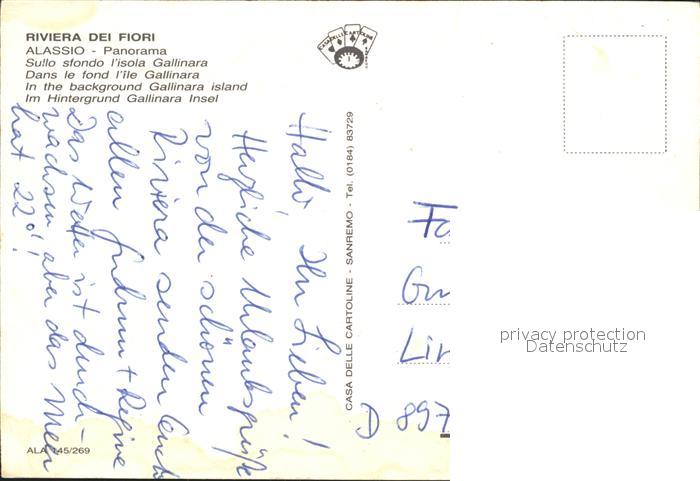 RIVIERA DEI FIORI
ALASSIO - Panorama
Sullo sfondo l'isola Gallinara
Dans le fond l'île Gallinara
In the background Gallinara island
Im Hintergrund Gallinara Insel
CASA DELLE CARTOLINE
Hallo, Ihr Lieben!
Herzliche Urlaubsgrüße
von der schönen
Riviera senden Euch
allen + Regine
Das Wetter ist durch-
wachsen, aber das Meer
hat 22°!
CASA DELLE CARTOLINE - SANREMO - Tel. (0184) 83729
Fa
Gu
Lin
D 897
privacy protection
Datenschutz
ALA 145/269